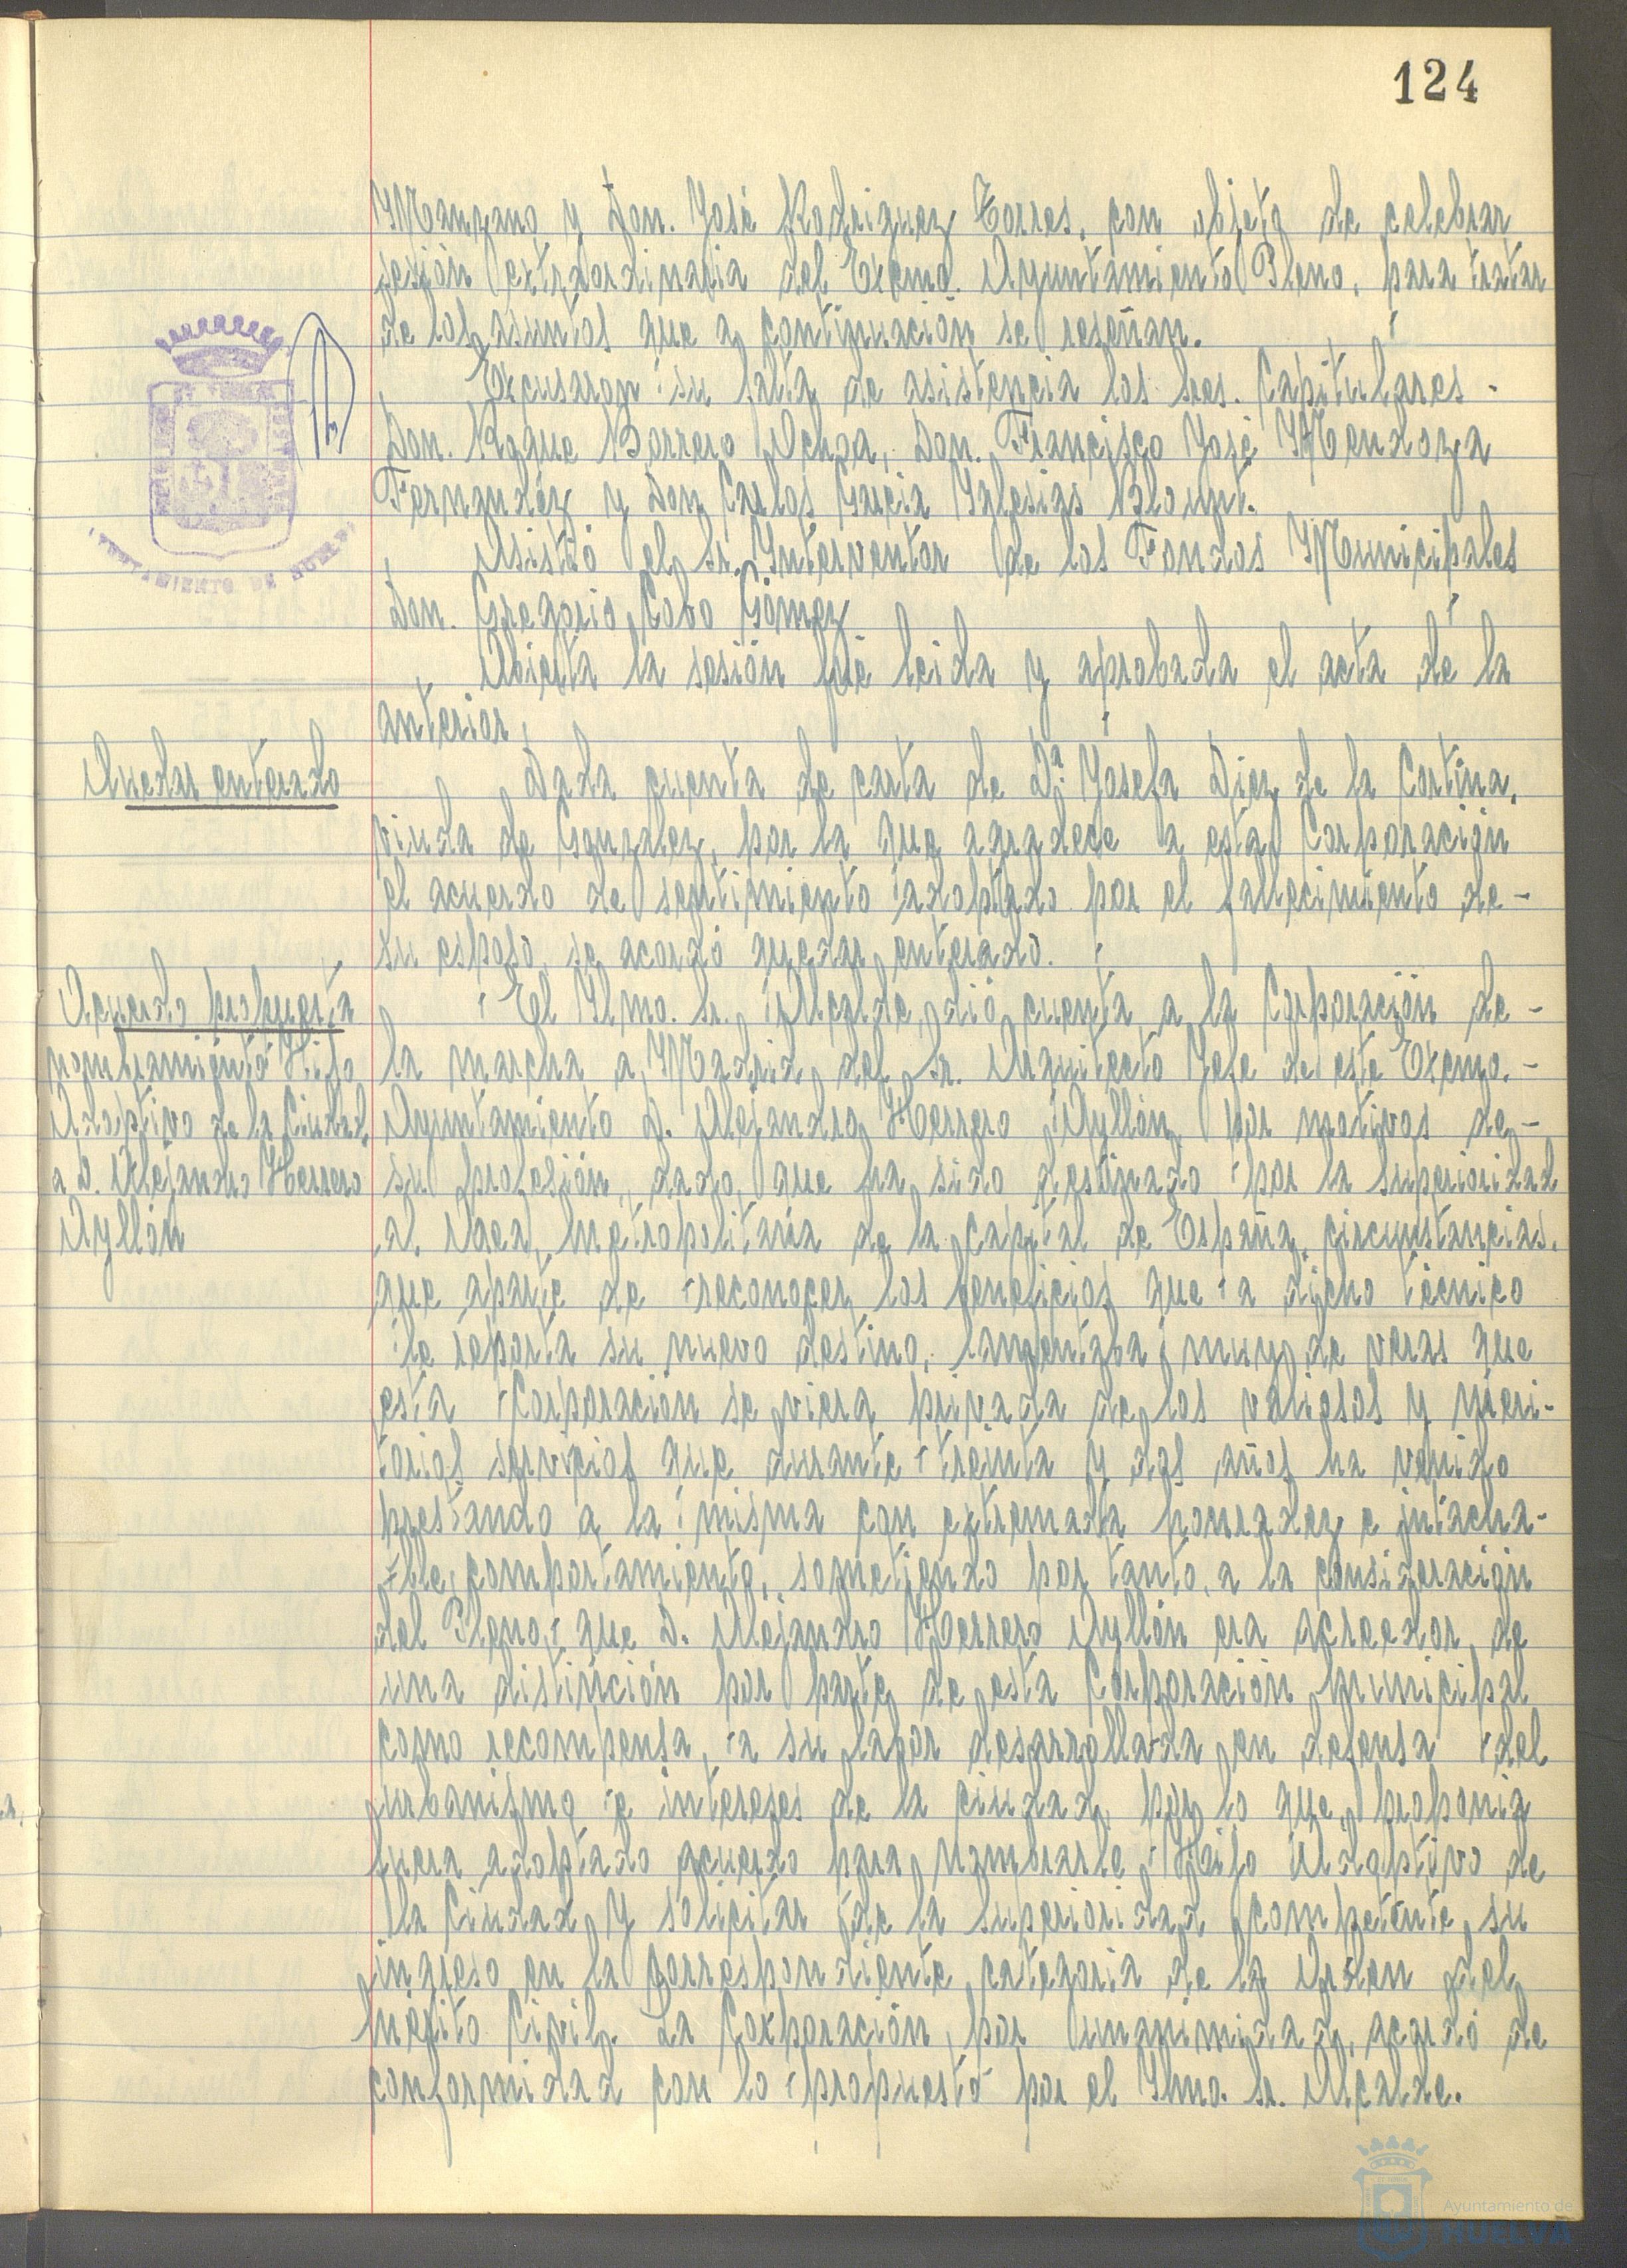 124
Manzano y Don. José Rodriguez Torres, con objeto de celebrar
sesión extraordinaria del Excmo. Ayuntamiento Pleno, para tratar
de los asuntos que a continuación se reseñan.
Excusaron su falta de asistencia los Sres. Capitulares -
Don. Roque Borrero Ochoa, Don. Francisco José Mendoza
Fernandez y Don Carlos Garcia Yglesias Blount.
Asistió el Sr. Interventor de los Fondos Municipales
Don. Gregorio Cobo Gómez
Abierta la sesión fué leida y aprobada el acta de la
anterior,
Quedar enterado
Dada cuenta de carta de Dª Josefa Diez de la Cortina,
viuda de Gonzalez, por la que agradece a esta Corporación
el acuerdo de sentimiento adoptado por el fallecimiento de-
su esposo, se acordó quedar enterado.
Acuerdo propuesta
nombramiento Hijo
Adoptivo de la Ciudad,
a D. Alejandro Herrero
Ayllón
El Ylmo. Sr. Alcalde, dió cuenta a la Corporación de-
la marcha a Madrid, del Sr. Arquitecto Jefe de este Excmo.-
Ayuntamiento D. Alejandro Herrero Ayllón, por motivos de-
su profesión, dado, que ha sido destinado por la superioridad
al Area Metropolitana de la Capital de España, circunstancias,
que aparte de reconocer los beneficios que a dicho técnico
le reporta su nuevo destino, lamentaba muy de veras que
esta Corporación se viera privada de los valiosos y meri-
torios servicios que durante treinta y dos años ha venido
prestando a la misma con extremada honradez e intacha-
ble comportamiento, sometiendo por tanto, a la consideración
del Pleno, que D. Alejandro Herrero Ayllón era acreedor, de
una distinción por parte de esta Corporación Municipal
como recompensa, a su labor desarrollada en defensa del
urbanismo e intereses de la ciudad, por lo que, proponia
fuera adoptado acuerdo para nombrarle Hijo Adoptivo de
la Ciudad y solicitar de la superioridad competente, su
ingreso en la correspondiente categoria de la Orden del
Mérito Civil. La Corporación, por unanimidad, acordó de
conformidad con lo propuesto por el Ylmo. Sr. Alcalde.
Ayuntamiento de
HUELVA